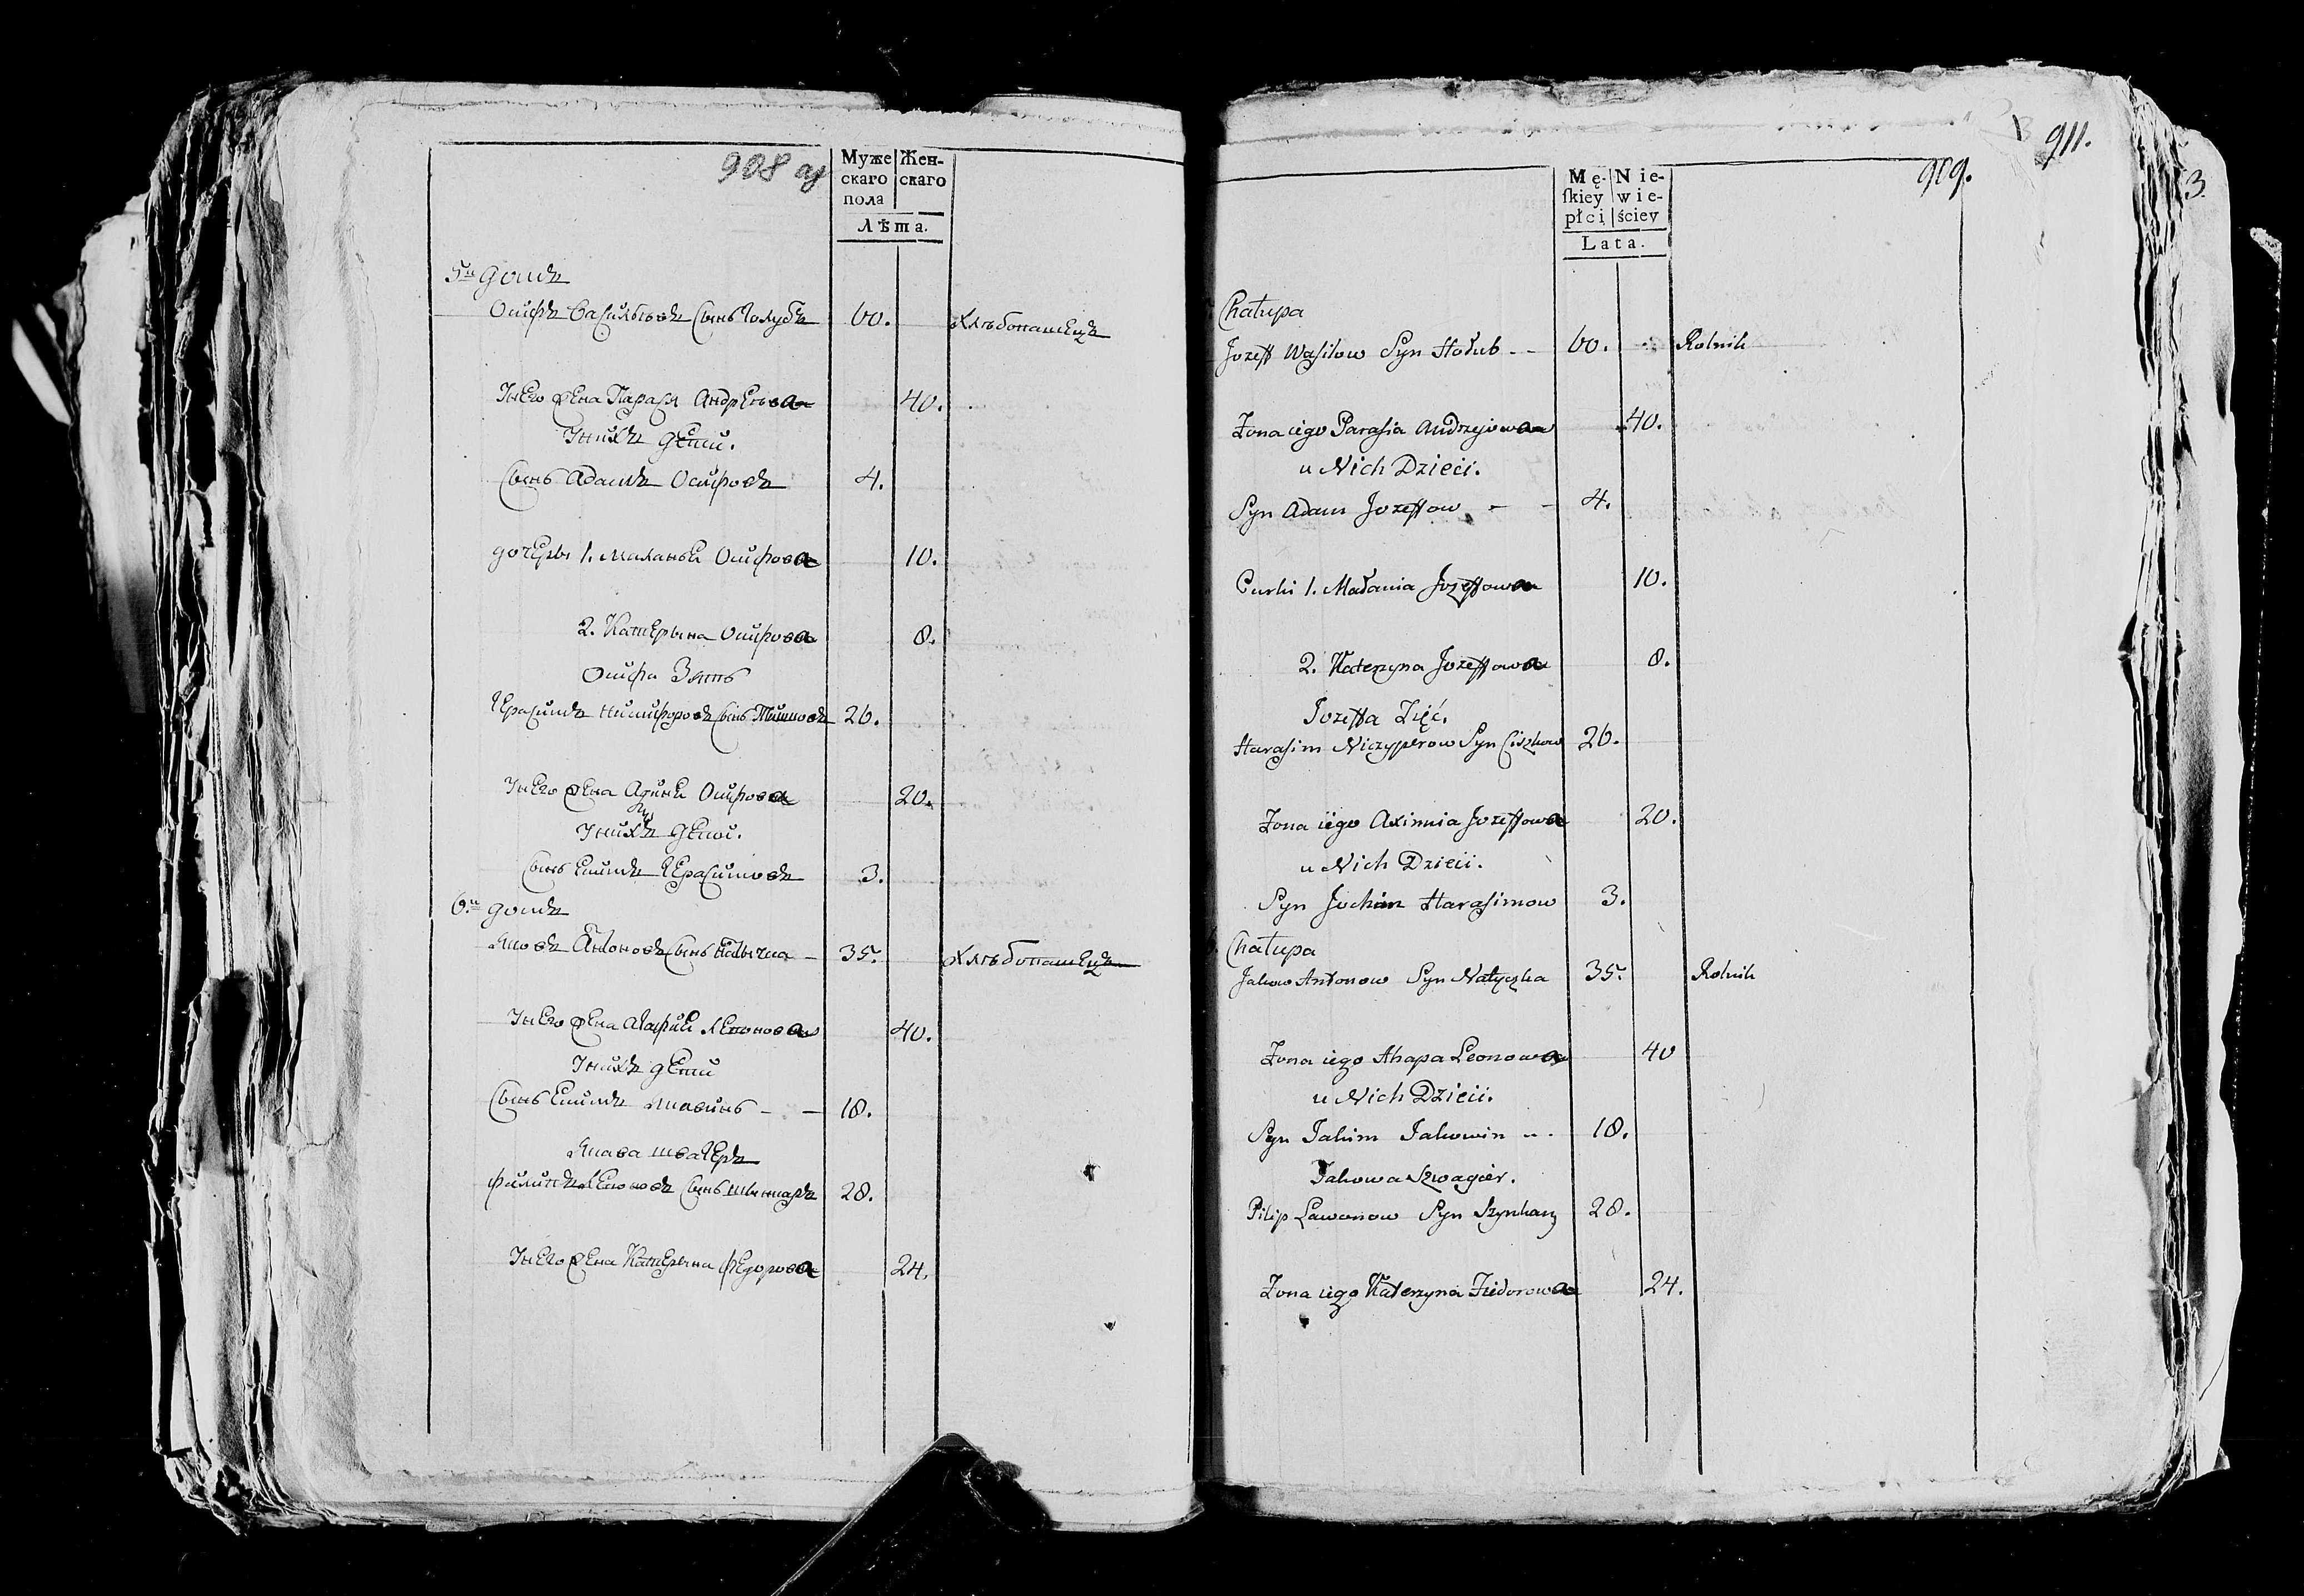 908 об
Муже Жен-
скаго скаго
пола
Лѣта.
5й домъ
Осифъ Васильевъ сынъ Голубъ 60. хлѣбопашецъ
У него жена Парася Андреева 40.
У нихъ дети.
Сынъ Адамъ Осифовъ 4.
дочеры 1. Маланья Осифова 10.
2. Катерына Осифова 8.
Осифа Зять
Герасимъ Никифоровъ сынъ 26.
У него жена Осифова 20.
У нихъ дети.
сынъ Екимъ Герасимовъ 3.
6й домъ
Яковъ Антоновъ сынъ Натычка 35. хлѣбопашецъ
У него жена Агафия Леонова 40.
У нихъ дети
Сынъ Екимъ Яковинъ 18.
Якова швагеръ
Филипъ Леоновъ сынъ Шынкаръ 28.
У него жена Катерына Федорова 24.
911.
909.
3.
Mę- Nie-
ſkiey wie-
płci ściey
Lata.
Chałupa
Jozeff Wasilow Syn Hołub 60. Rolnik
Żona iego Parasia Andrzejowa 40.
u Nich Dzieci.
Syn Adam Jozeffow 4.
Curki 1. Małania Jozeffowa 10.
2. Katerzyna Jozeffowa 8.
Jozeffa Zięć.
Harasim Niczyperow Syn Ciszkow 26.
Żona iego Aximia Jozeffowa 20.
u Nich Dzieci.
Syn Jochim Harasimow 3.
Chałupa
Jakow Antonow Syn Natyczka 35. Rolnik
Żona iego Ahapa Leonowa 40
u Nich Dzieci.
Syn Jakim Jakowin 18.
Jakowa Szwagier.
Pilip Lawonow Syn Szynkarz 28.
Żona iego Katerzyna Fiedorowa 24.